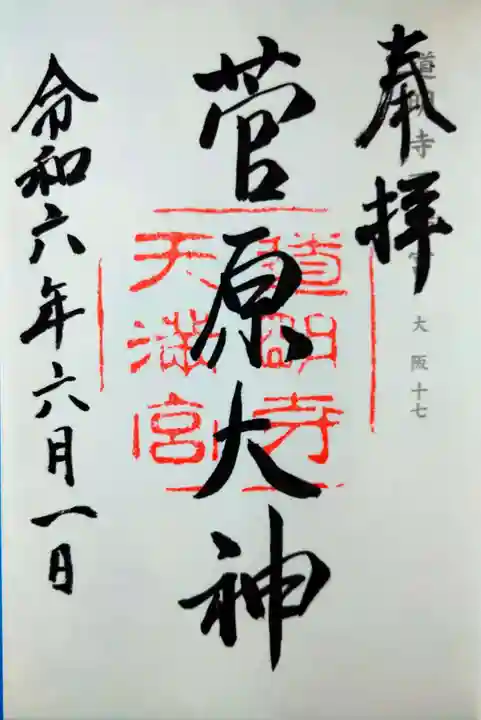 奉拝
道明寺天満宮
大阪十七
菅原大神
道明寺
天満宮
令和六年六月一日